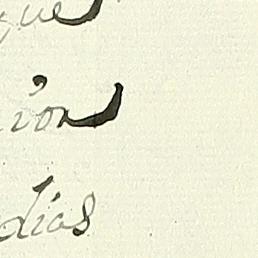 que
ion
dias